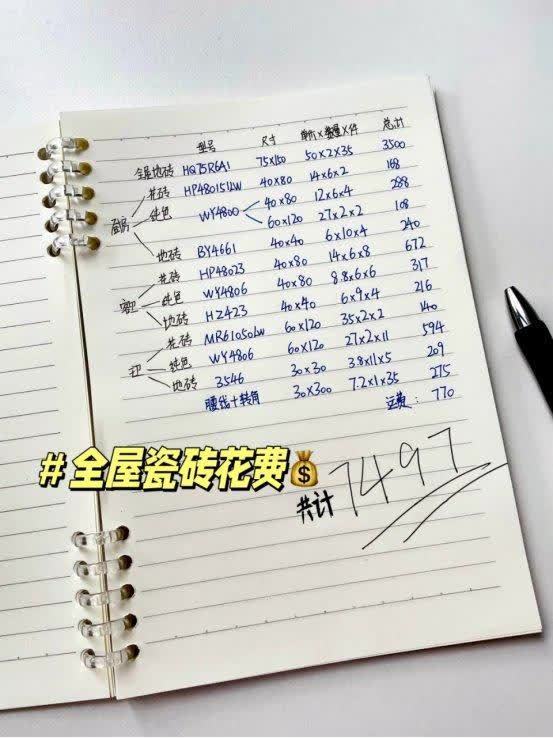 型号 尺寸 单价×数量×件 总计
全屋地砖 HQ75R6A1 75×150 50×2×35 3500
厨房 花砖 HP48015LW 40×80 14×6×2 168
纯色 WY4800 40×80 12×6×4 288
60×120 27×2×2 108
地砖 BY4661 40×40 6×10×4 240
花砖 HP48023 40×80 14×6×8 672
纯色 WY4806 40×80 8.8×6×6 317
地砖 HZ423 40×40 6×9×4 216
花砖 MR61050LW 60×120 35×2×2 140
纯色 WY4806 60×120 27×2×11 594
地砖 3546 30×30 3.8×11×5 209
腰线+转角 30×300 7.2×1×35 275
运费: 770
#全屋瓷砖花费
共计 7497